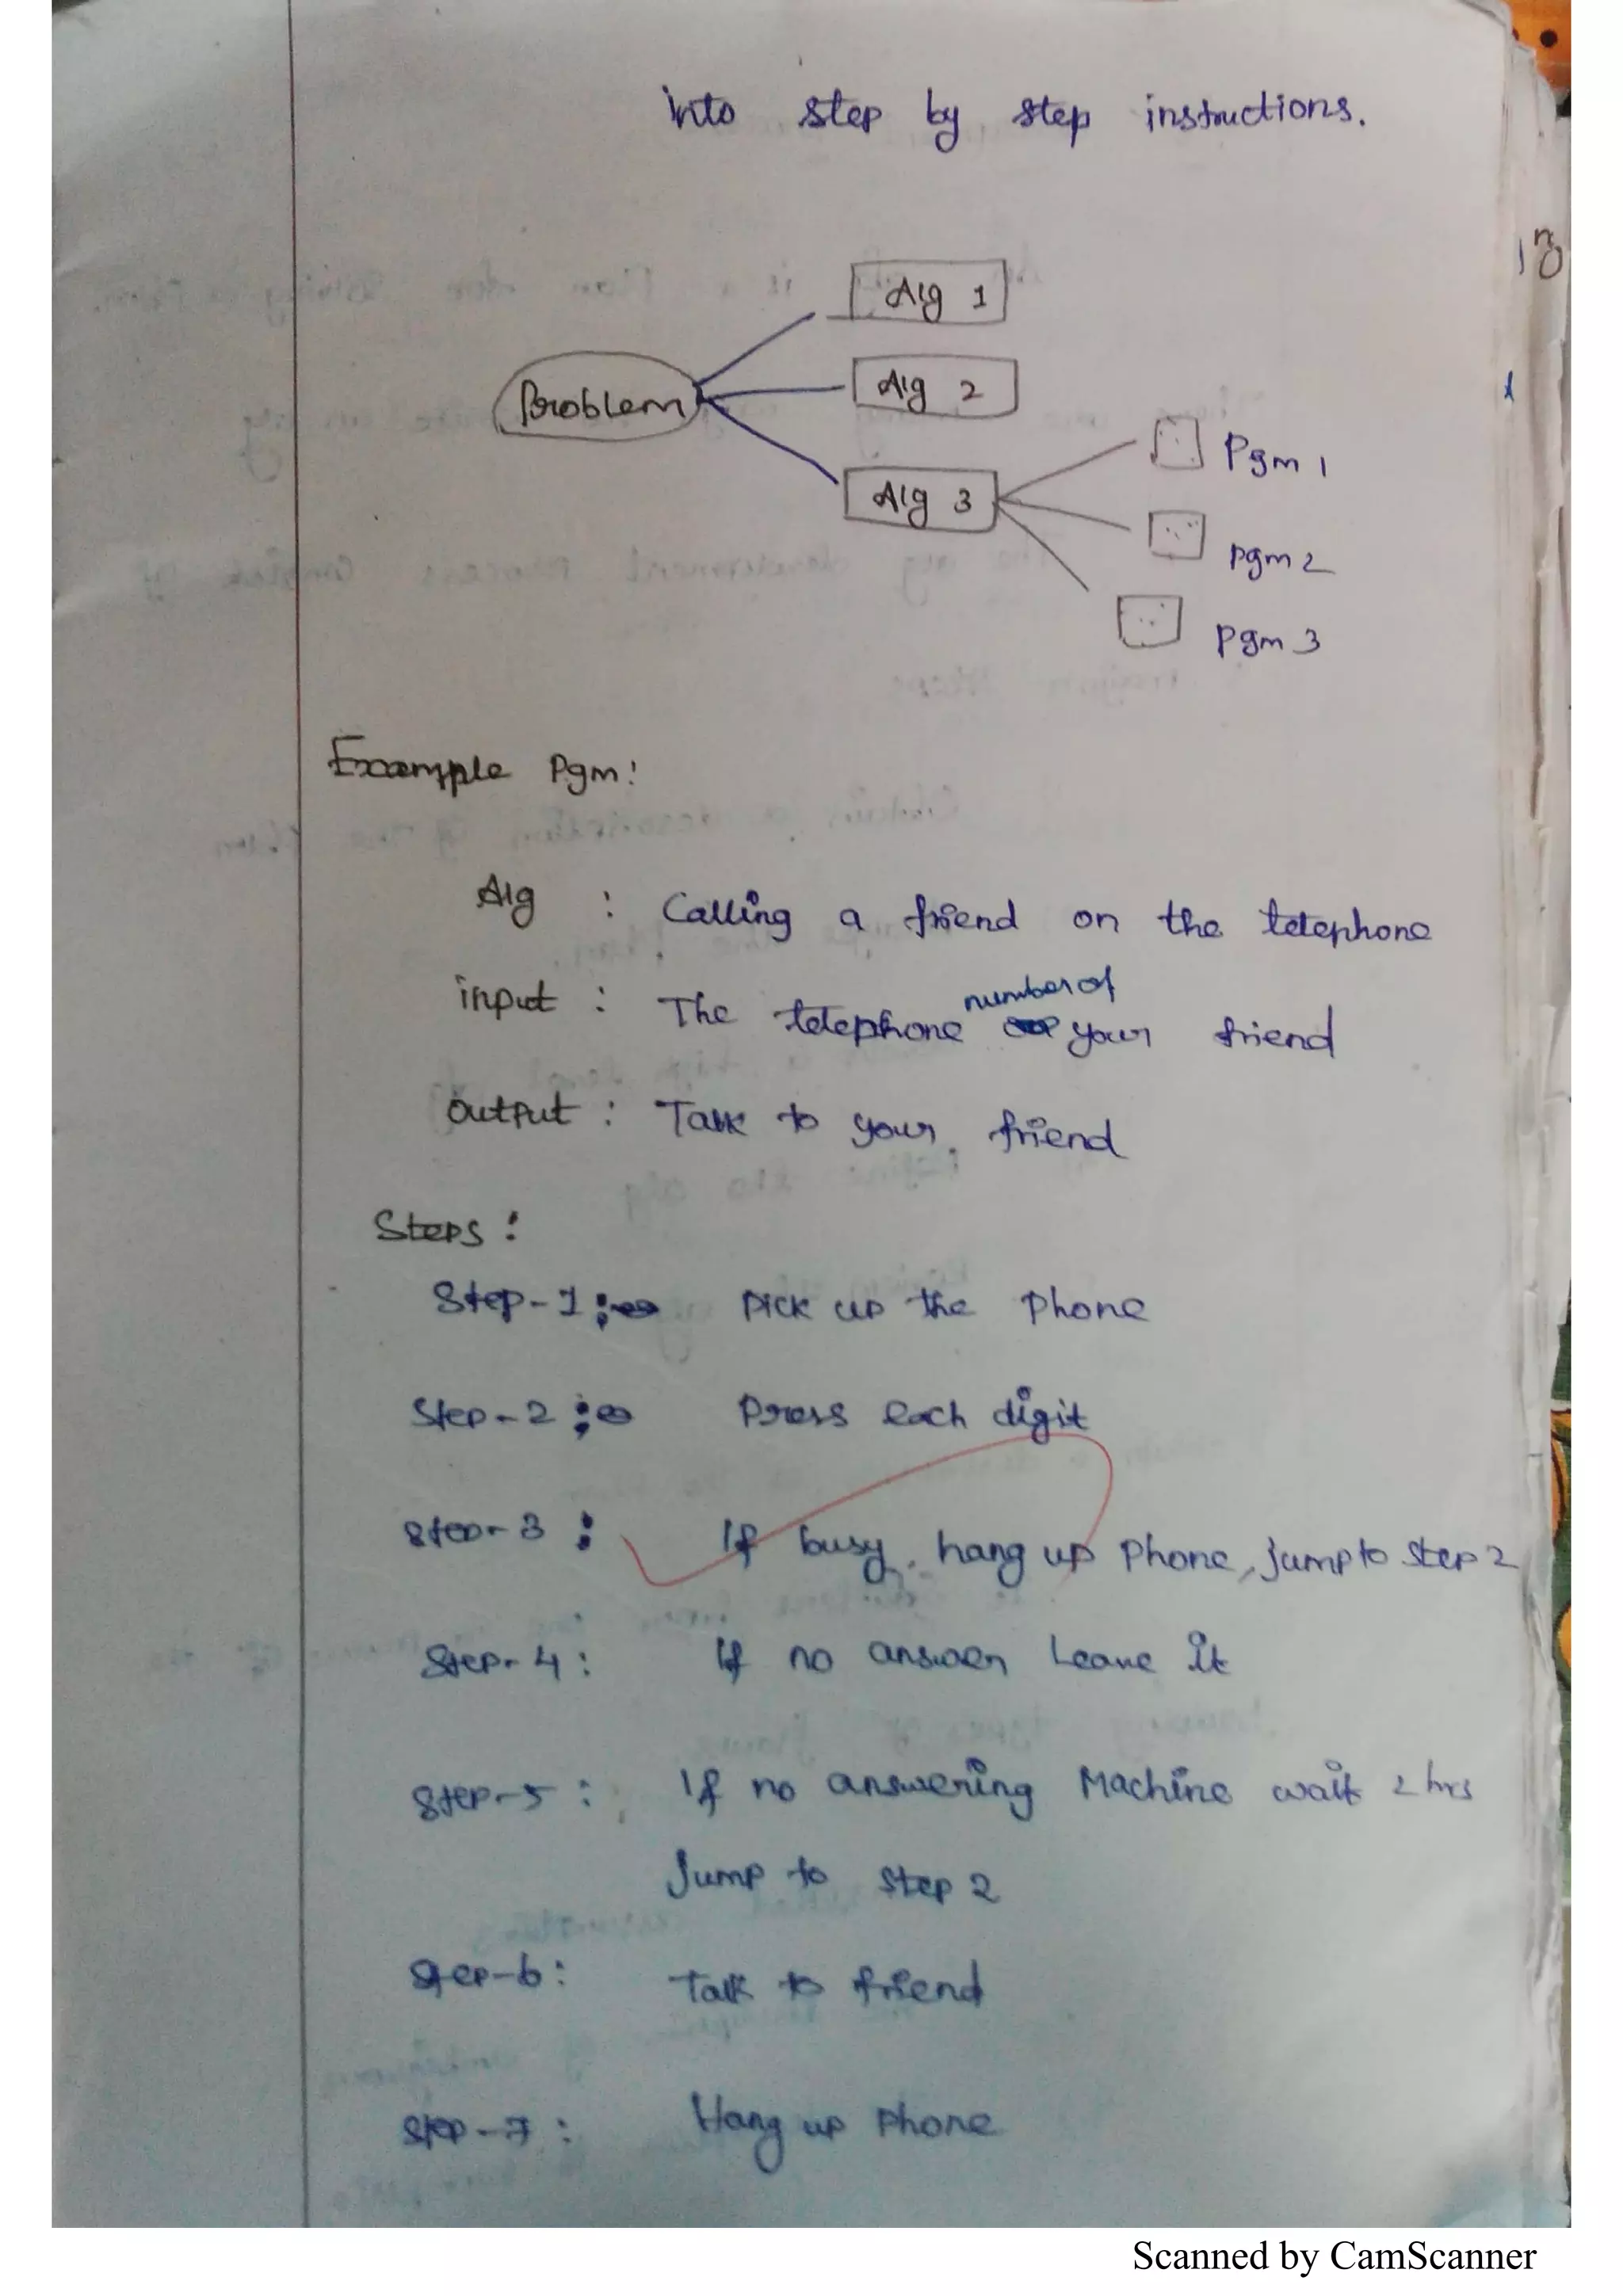 into step by step instructions.
Problem
Alg 1
Alg 2
Alg 3
Pgm 1
pgm 2
pgm 3
Example Pgm:
Alg : Calling a friend on the telephone
input : The telephone number of your friend
output : Talk to your friend
Steps :
Step-1 : Pick up the Phone
Step-2 : Press each digit
Step-3 : If busy, hang up Phone, jump to Step 2
Step-4 : If no answer Leave it
Step-5 : If no answering Machine wait 2 hrs
Jump to step 2
Step-6 : Talk to friend
Step-7 : Hang up phone
Scanned by CamScanner